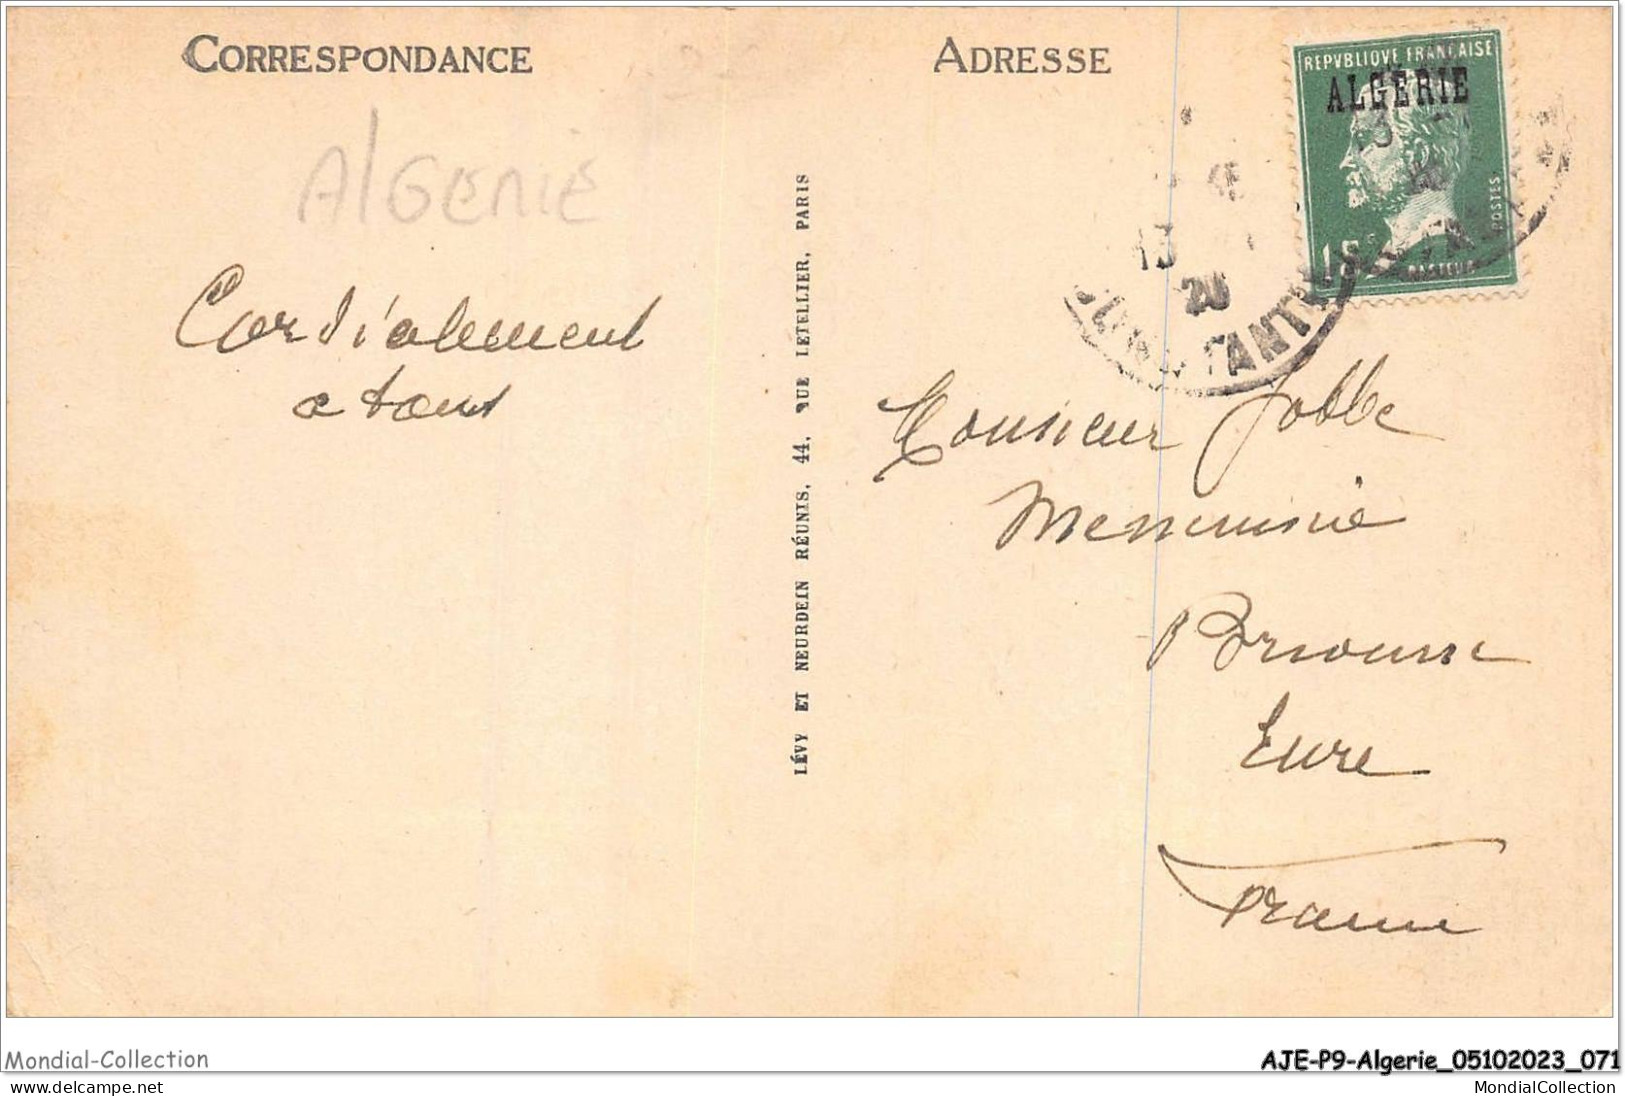 CORRESPONDANCE
ADRESSE
REPVBLIQVE FRANÇAISE
ALGÉRIE
POSTES
15c
PASTEUR
13
20
CONSTANTINE
AlGERIE
Cordialement
a tous
LÉVY ET NEURDEIN RÉUNIS, 44, RUE LETELLIER, PARIS
Monsieur Jobbe
Menuisie
Brionne
Eure
France
Mondial-Collection
AJE-P9-Algerie_05102023_071
MondialCollection